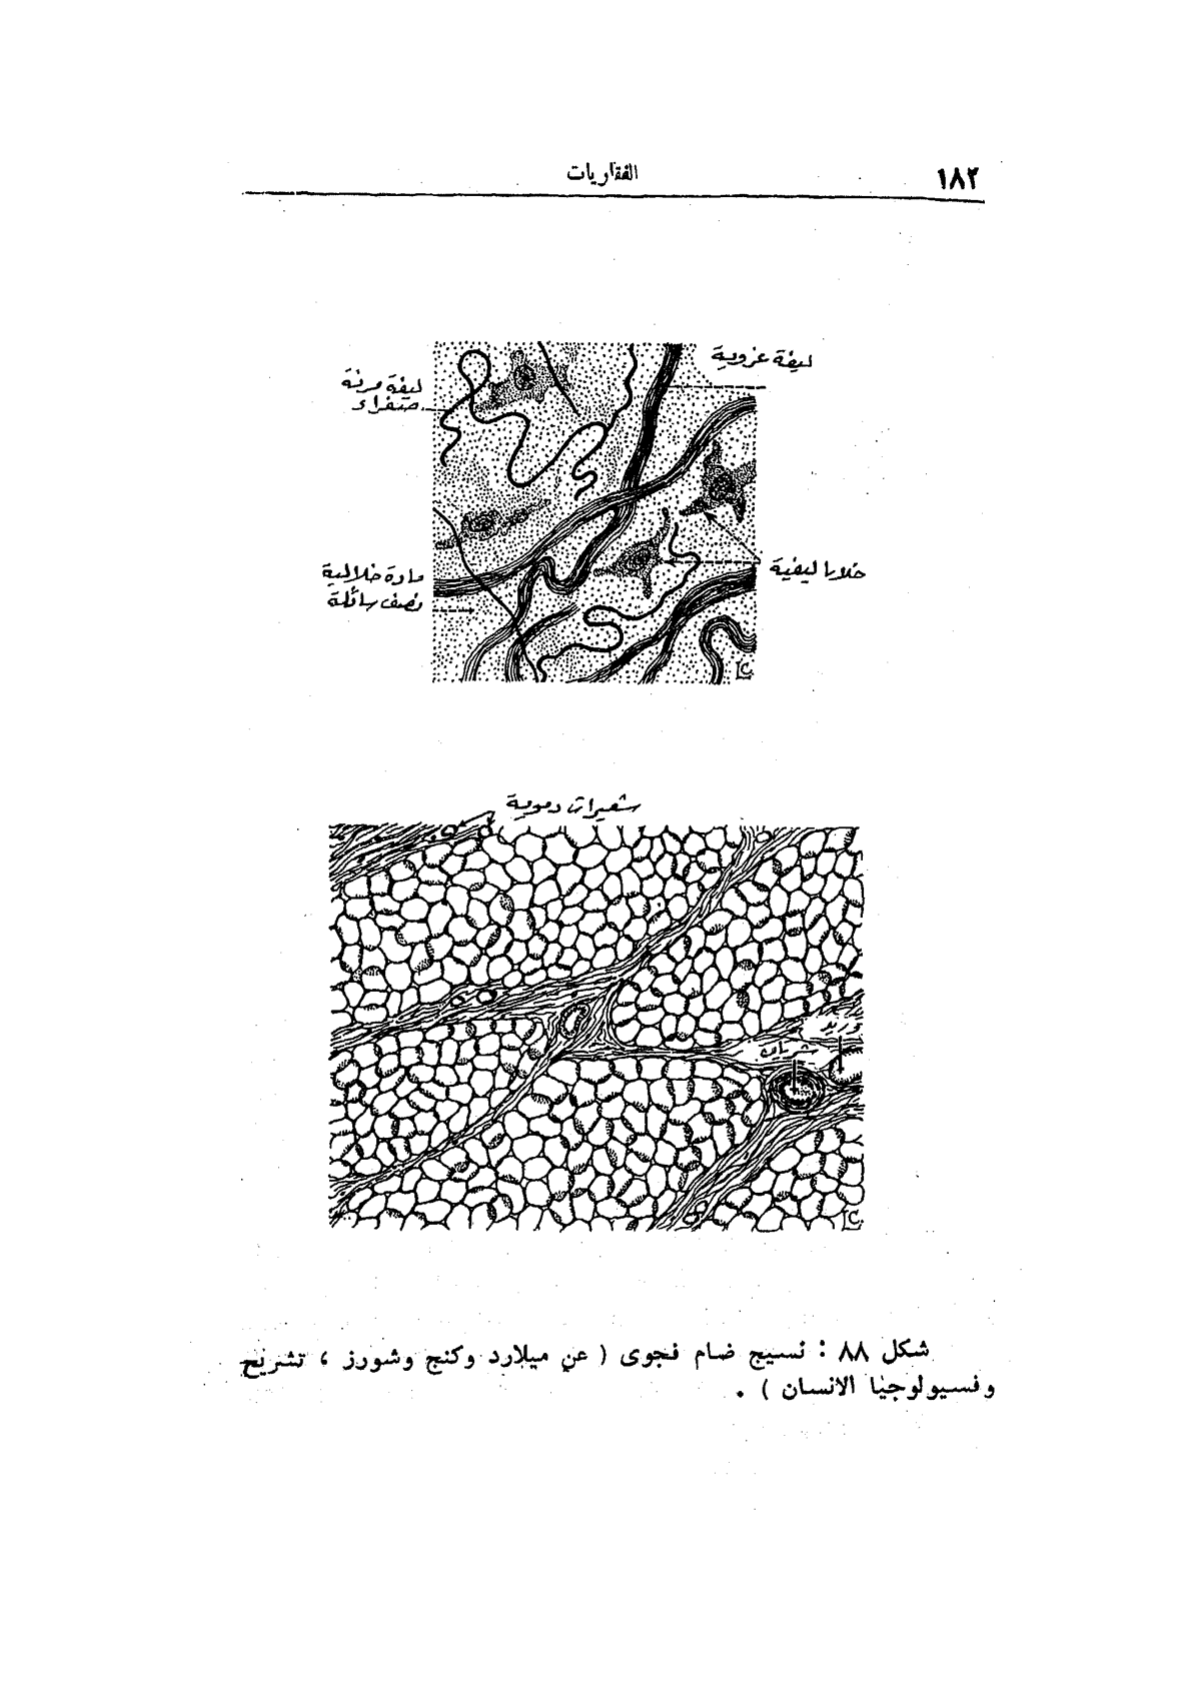 ١٨٢
الفقاريات
ليفة غروية
ليفة مرنة
صفراء
خلايا ليفية
مادة خلالية
نصف سائلة
LC
شعيرات دموية
وريد
شريان
LC
شكل ٨٨ : نسيج ضام فجوى ( عن ميلارد وكنج وشورز ، تشريح
وفسيولوجيا الانسان ) .